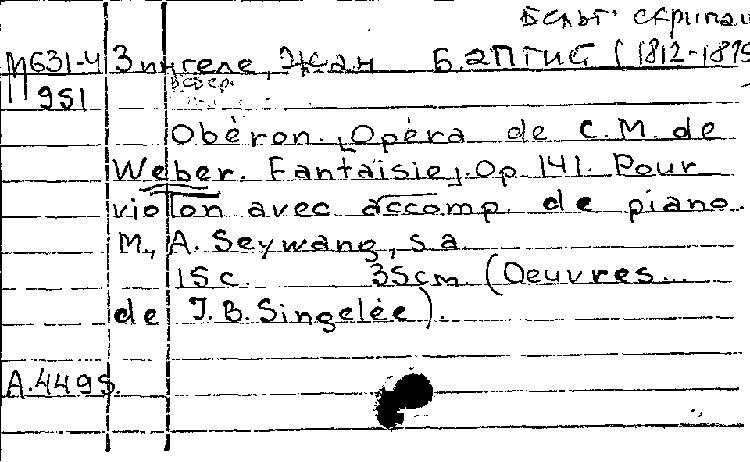 Бельг. скрипач
М631-4 Зингеле, Жан Б.аптис (1812-1875
951
Obéron. [Opéra de C. M. de
Weber. Fantaisie]. Op. 141. Pour
violon avec accomp. de piano.
M., A. Seywang, s.a.
15 c. 35 cm (Oeuvres
de J. B. Singelée).
A.4495.